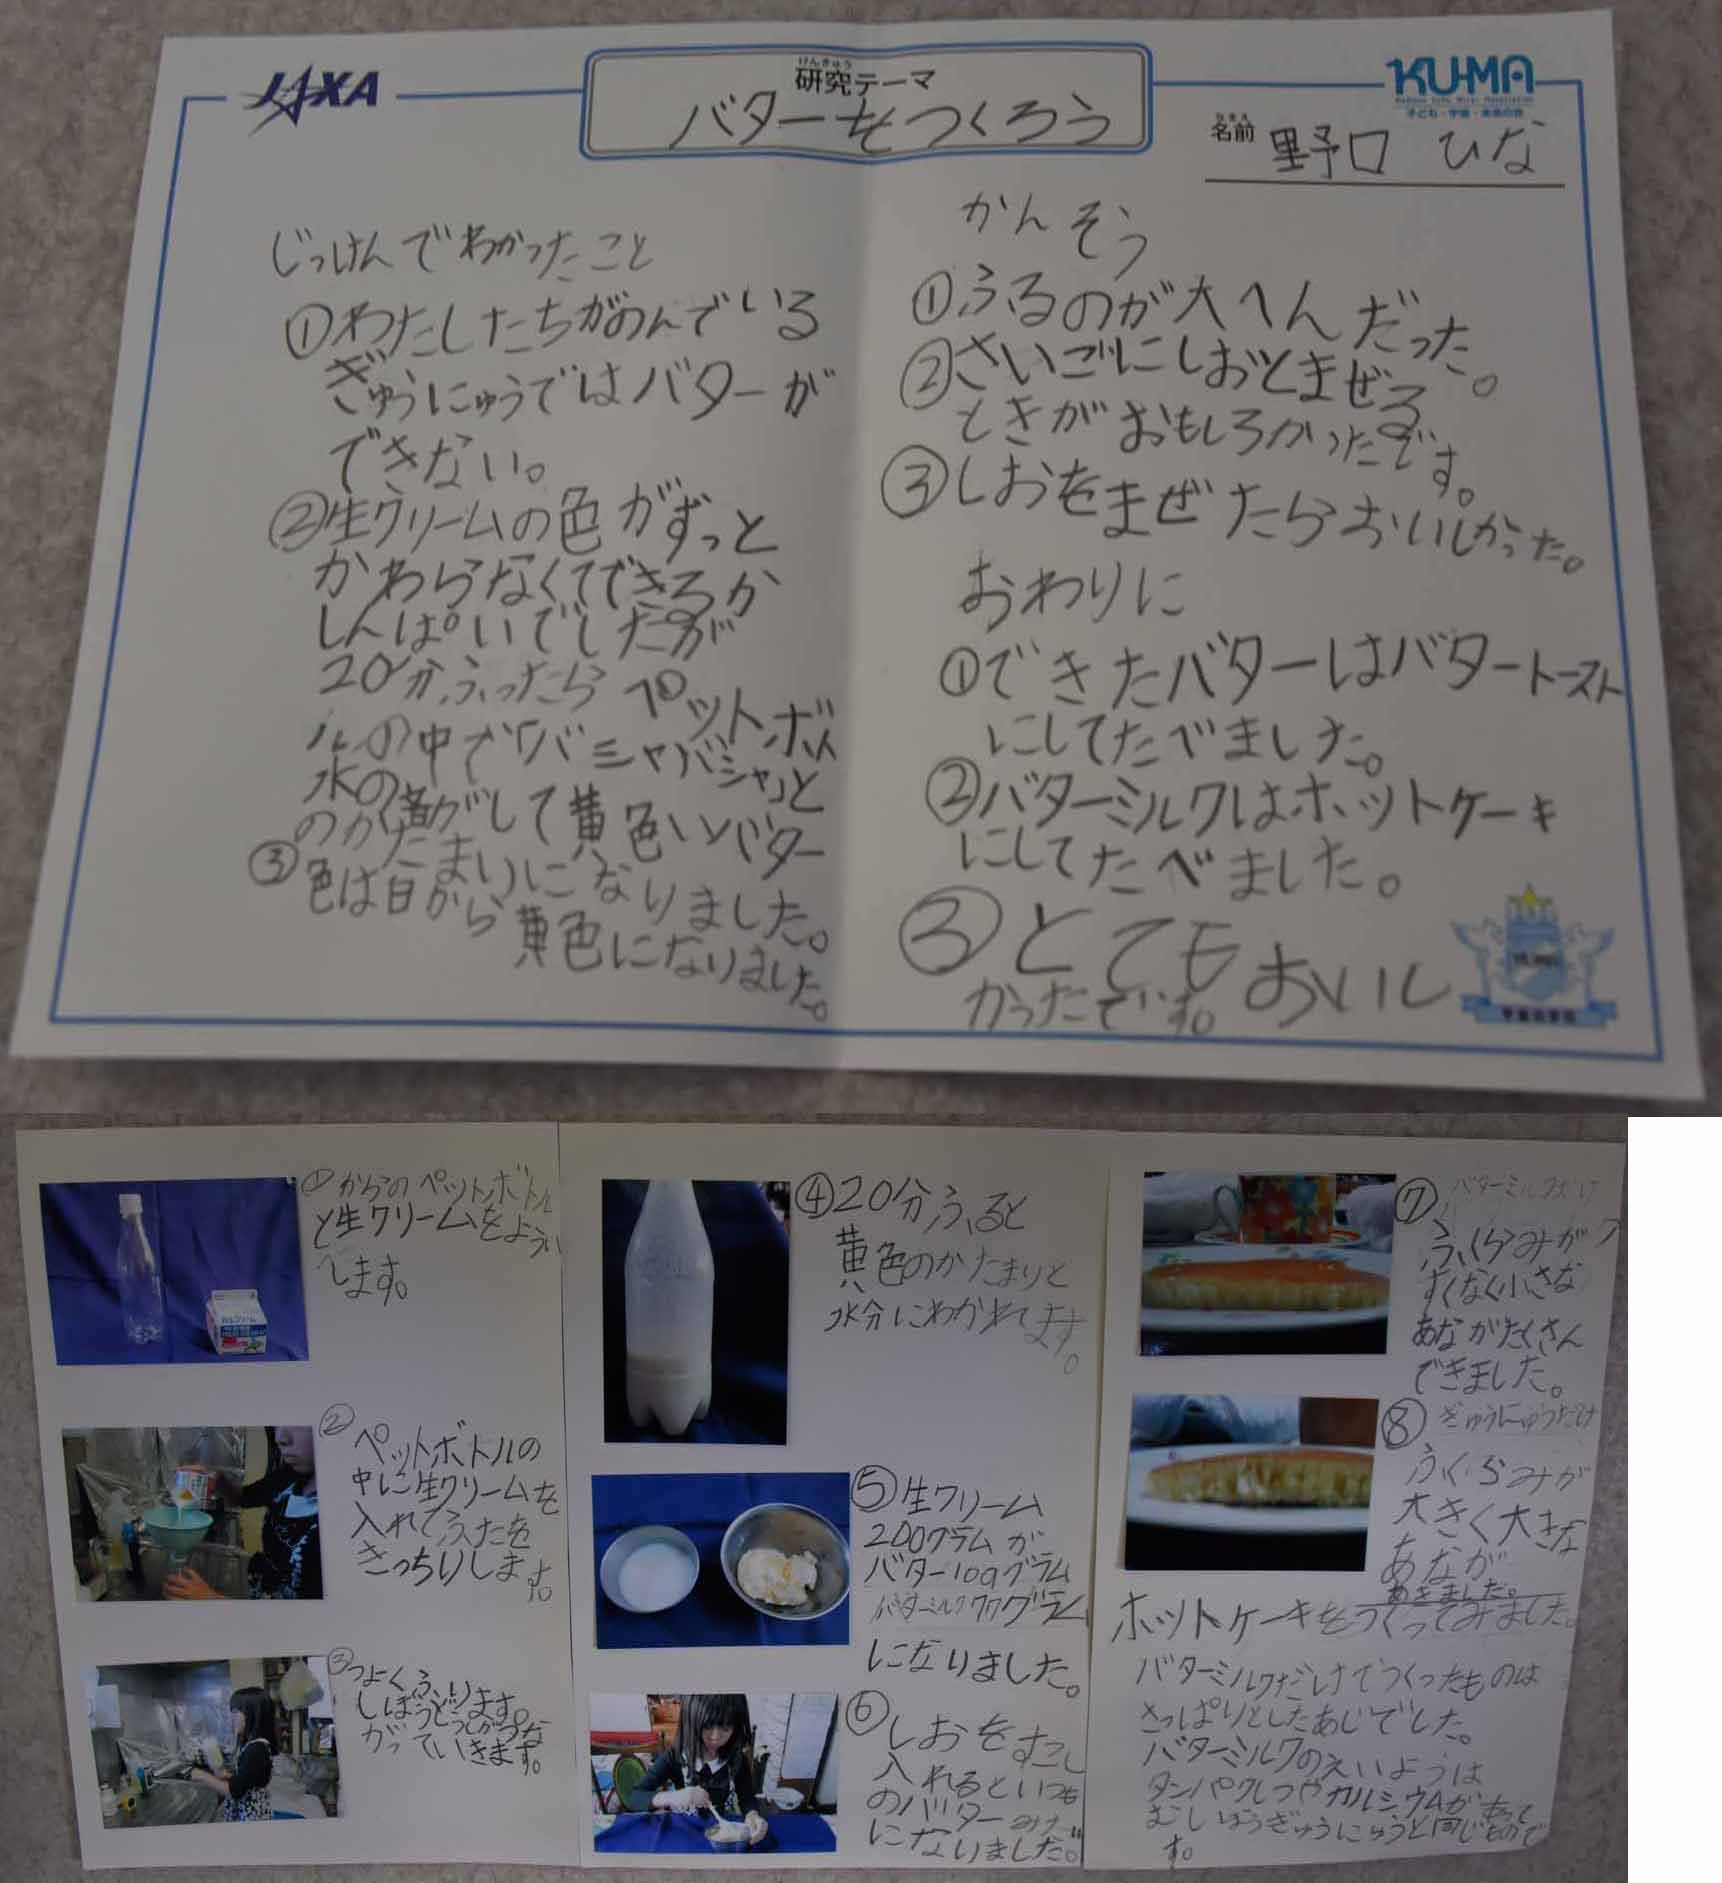 JAXA
けんきゅう
研究テーマ
バターをつくろう
KU-MA
子ども・宇宙・未来の会
なまえ
名前 野口 ひな
じっけんでわかったこと
①わたしたちがのんでいる
ぎゅうにゅうではバターが
できない。
②生クリームの色がずっと
かわらなくてできるか
しんぱいでしたが
20分ふったらペットボト
ルの中で「バシャバシャ」と
水の音がして黄色いバター
のかたまりになりました。
③色は白から
黄色になりました。
かんそう
①ふるのが大へんだった。
②さいごにしおとまぜる
ときがおもしろかったです。
③しおをまぜたらおいしかった。
おわりに
①できたバターはバタートースト
にしてたべました。
②バターミルクはホットケーキ
にしてたべました。
③とてもおいし
かったです。
①からのペットボトル
と生クリームをようい
します。
②ペットボトルの
中に生クリームを
入れてふたを
きっちりします。
③つよくふります。
しぼうどうしがつな
がっていきます。
④20分ふると
黄色のかたまりと
水分にわかれてます。
⑤生クリーム
200グラムが
バター109グラム
バターミルク77グラム
になりました。
⑥しおをすこし
入れるといつも
のバターみたい
になりました。
⑦バターミルクだけ
ふくらみが
すくなく小さな
あながたくさん
できました。
⑧ぎゅうにゅうだけ
ふくらみが
大きく大きな
あなが
あきました。
ホットケーキをつくってみました。
バターミルクだけでつくったものは
さっぱりとしたあじでした。
バターミルクのえいようは
タンパクしつやカルシウムがあって
むしぼうぎゅうにゅうと同じもので
す。